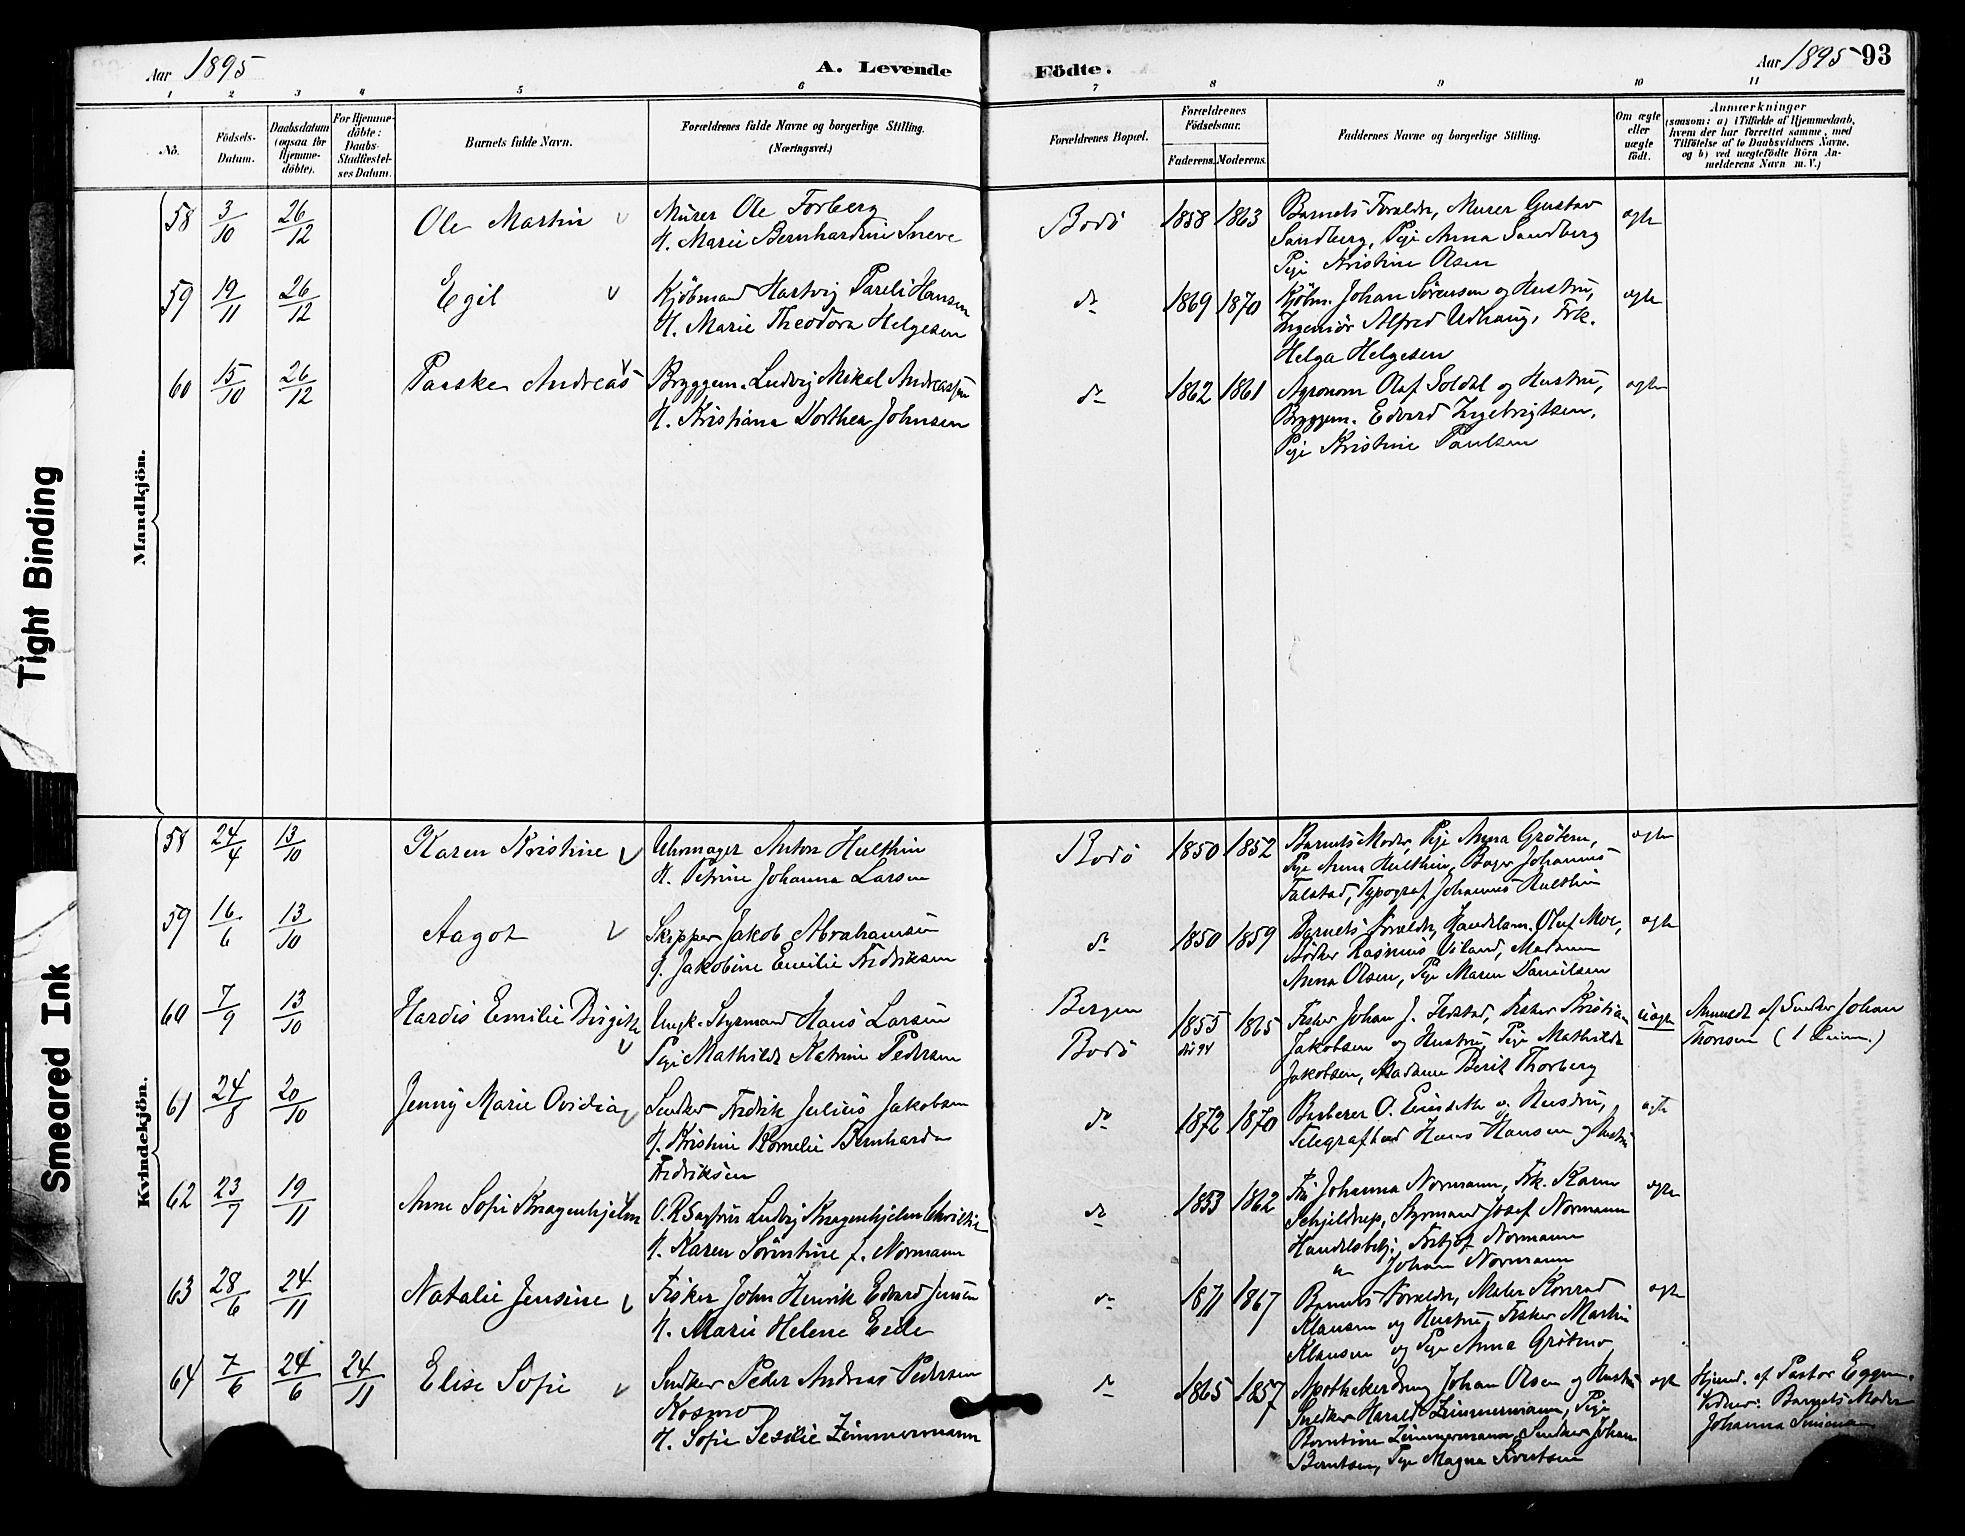 Aar 1895
A. Levende
Födte.
Aar 1895
93
1 2 3 4 5 6 7 8 9 10 11
No.
Födsels-
Datum.
Daabsdatum
(ogsaa for
Hjemme-
döbte).
For Hjemme-
döbte:
Daabs-
Stadfæstel-
ses Datum.
Barnets fulde Navn.
Forældrenes fulde Navne og borgerlige Stilling.
(Næringsvei.)
Forældrenes Bopæl.
Forældrenes
Födselsaar.
Faderens. Moderens.
Faddernes Navne og borgerlige Stilling.
Om ægte
eller
uægte
født.
Anmærkninger
(saasom: a) i Tilfælde af Hjemmedaab,
hvem der har forrettet samme, med
Tilföielse af to Daabsvidners Navne.
og b) ved uægtefödte Börn An-
melderens Navn m. V.)
Mandkjön.
58 3/10 26/12 Ole Martin
Murer Ole Forberg
H. Marie Bernhardine Sneve
Bodö 1858 1863
Barnets Forældre, Murer Gustav
Sandberg, Pige Anna Sandberg
Pige Kristine Olsen
ægte
59 19/11 26/12 Egil
Kjöbmand Hartvig Pareli Hansen
H. Marie Theodora Helgesen
do 1869 1870
Kjöbm. Johan Sörensen og Hustru,
Ingeniör Alfred Udhaug, Frk.
Helga Helgesen
ægte
60 15/10 26/12 Paaske Andreas
Bryggem. Ludvig Mikal Andreassen
H. Kristiana Dorthea Johnsen
do 1862 1861
Agronom Olaf Soldal og Hustru,
Bryggem. Edvard Ingebrigtsen,
Pige Kristine Paulsen
ægte
Kvindekjön.
58 24/4 13/10 Karen Kristine
Uhrmager Anton Hulthin
H. Petrine Johanna Larsen
Bodö 1850 1852
Barnets Moder, Pige Anna Grötem,
Pige Anna Hulthin, Bager Johannes
Falstad, Typograf Johannes Hulthin
ægte
59 16/6 13/10 Aagot
Skipper Jakob Abrahamsen
H. Jakobine Emilie Fredriksen
do 1850 1859
Barnets Forældre, Handelsm. Oluf Moe,
Bödker Rasmus Uiland, Madam
Anna Olsen, Pige Maren Danielsen
ægte
60 7/9 13/10 Hardis Emilie Birgitte
Ungk. Styrmand Hans Larsen
Pige Mathilde Katrine Pedersen
Bergen
Bodö
1855 1865
Fisker Johan J. Ildstad, Fisker Kristian
Jakobsen og Hustru, Pige Mathilde
Jakobsen, Madam Berit Thorberg
uægte
Anmeldt af Snedker Johan
Thorsen
61 24/8 20/10 Jenny Marie Ovidia
Snedker Fredrik Julius Jakobsen
H. Kristine Kornelie Bernharda
Fredriksen
do 1872 1870
Barberer O. og Hustru,
Telegrafbud Hans Hansen og Hustru
ægte
62 23/7 19/11 Anne Sofie Knagenhjelm
O.R.Sagförer Ludvig Knagenhjelm Christie
H. Karen Sörentine f. Normann
do 1853 1862
Fru Johanna Normann, Frk. Karen
Schjeldrup, Styrmand Josef Normann
Handelsbetj. Fritjof Normann
" Johan Normann
ægte
63 28/6 24/11 Natalie Jensine
Fisker John Henrik Edvard Jensen
H. Marie Helene
do 1871 1867
Barnets Forældre, Maler Konrad
Klausen og Hustru, Fisker Martin
Klausen og Pige Anna Grötmo
ægte
64 7/6 24/6 24/11 Elise Sofie
Snedker Peder Andreas Pedersen
Kosmo
H. Sofie Zimmermann
do 1865 1857
Apothekerdreng Johan Olsen og Hustru
Snedker Harald Zimmermann, Pige
Berntine Zimmermann, Snedker Johan
Berntsen, Pige Magna Sivertsen
ægte
Hjemd. af Pastor Eggen.
Vidner: Barnets Moder
Johanna
Tight Binding
Smeared Ink